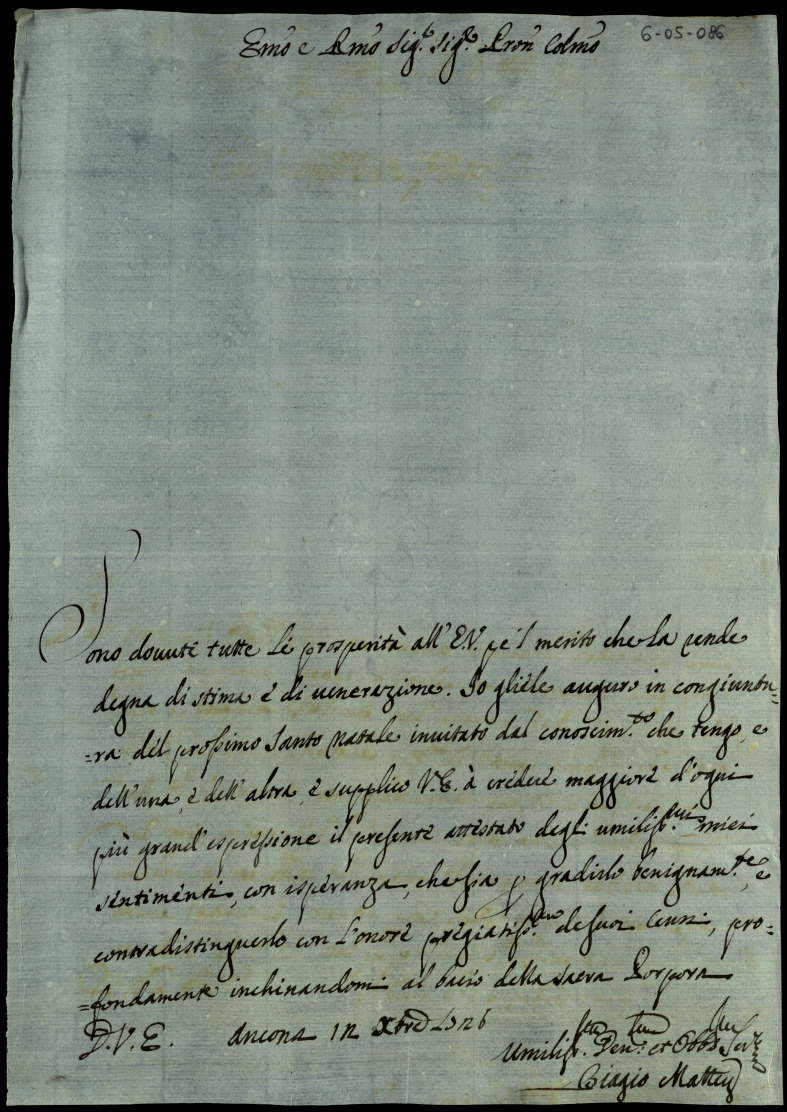 6-05-086
Emo e Rmo Sig.r Sig.r Pron Colmo
Sono douute tutte le prosperità all'E.V. pe'l merito che la rende
degna di stima e di uenerazione. Io gliele auguro in congiuntu=
=ra del prossimo Santo Natale inuitato dal conoscim.to che tengo, e
dell'una, e dell'altra, e supplico V.E. à credere maggiore d'ogni
più grand'espressione il presente attestato degli umiliss.mi miei
sentimenti, con isperanza, che sia p gradirlo benignam.te, e
contradistinguerlo con l'onore pregiatiss.mo de suoi cenni, pro=
=fondamente inchinandomi al bacio della sacra Porpora
D.V.E. Ancona 12 Xbre
Umiliss.mo Deu.mo et Obb.mo Ser.re
Biagio Mattei